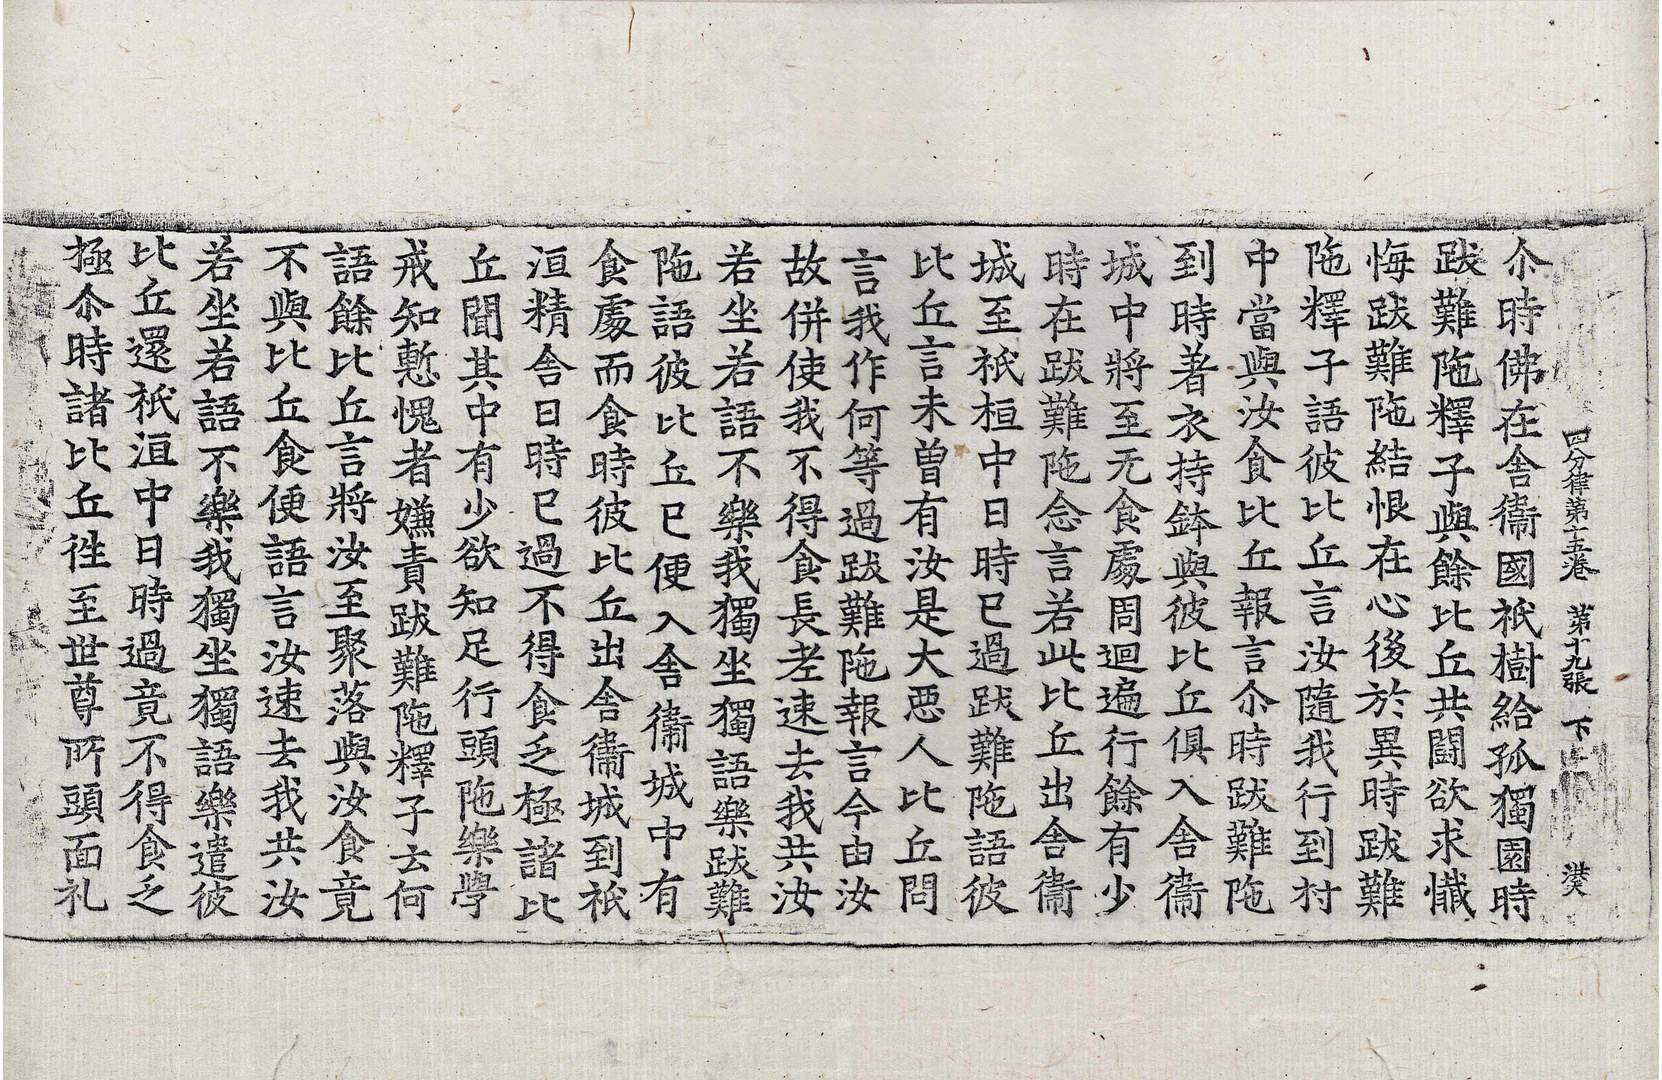 四分律第十五卷 第十九張 下
尒時佛在舍衞國祇樹給孤獨園時
跋難陁釋子與餘比丘共鬪欲求懺
悔跋難陁結恨在心後於異時跋難
陁釋子語彼比丘言汝隨我行到村
中當與汝食比丘報言尒時跋難陁
到時著衣持鉢與彼比丘俱入舍衞
城中將至无食處周迴遍行餘有少
時在跋難陁念言若此比丘出舍衞
城至祇桓中日時已過跋難陁語彼
比丘言未曾有汝是大惡人比丘問
言我作何等過跋難陁報言今由汝
故併使我不得食長老速去我共汝
若坐若語不樂我獨坐獨語樂跋難
陁語彼比丘已便入舍衞城中有
食處而食時彼比丘出舍衞城到祇
洹精舍日時已過不得食乏極諸比
丘聞其中有少欲知足行頭陁樂學
戒知慙愧者嫌責跋難陁釋子云何
語餘比丘言將汝至聚落與汝食竟
不與比丘食便語言汝速去我共汝
若坐若語不樂我獨坐獨語樂遣彼
比丘還祇洹中日時過竟不得食乏
極尒時諸比丘徃至世尊所頭面礼